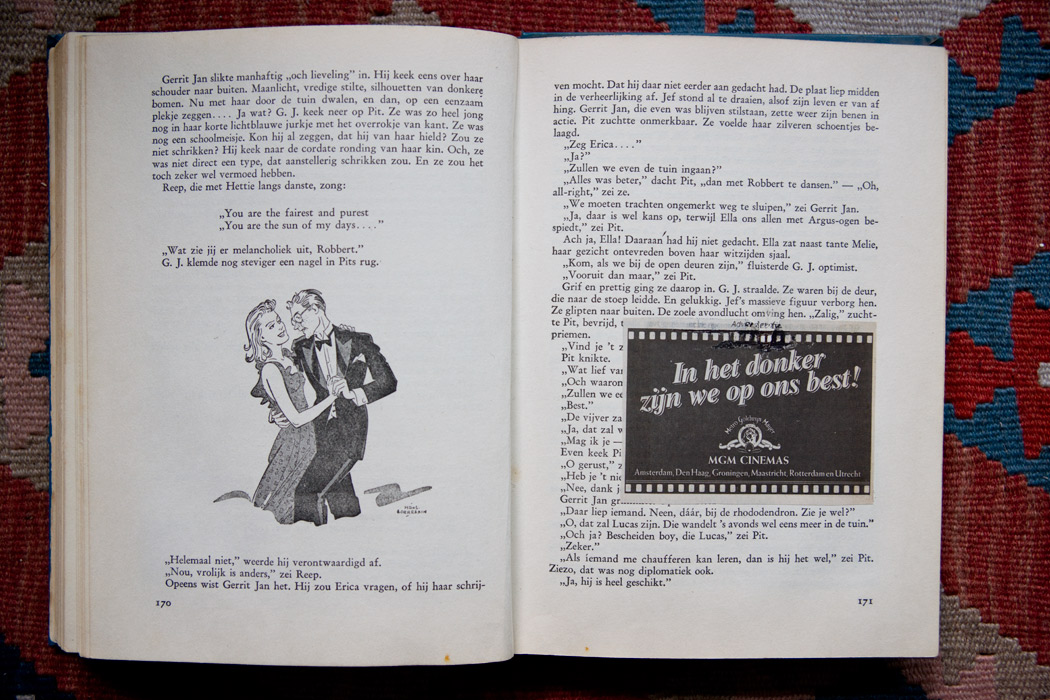 Gerrit Jan slikte manhaftig „och lieveling” in. Hij keek eens over haar
schouder naar buiten. Maanlicht, vredige stilte, silhouetten van donkere
bomen. Nu met haar door de tuin dwalen, en dan, op een eenzaam
plekje zeggen.... Ja wat? G. J. keek neer op Pit. Ze was zo heel jong
nog in haar korte lichtblauwe jurkje met het overrokje van kant. Ze was
nog een schoolmeisje. Kon hij al zeggen, dat hij van haar hield? Zou ze
niet schrikken? Hij keek naar de cordate ronding van haar kin. Och, ze
was niet direct een type, dat aanstellerig schrikken zou. En ze zou het
toch zeker wel vermoed hebben.
Reep, die met Hettie langs danste, zong:
„You are the fairest and purest
„You are the sun of my days....”
„Wat zie jij er melancholiek uit, Robbert.”
G. J. klemde nog steviger een nagel in Pits rug.
„Helemaal niet,” weerde hij verontwaardigd af.
„Nou, vrolijk is anders,” zei Reep.
Opeens wist Gerrit Jan het. Hij zou Erica vragen, of hij haar schrij-
170
ven mocht. Dat hij daar niet eerder aan gedacht had. De plaat liep midden
in de verheerlijking af. Jef stond al te draaien, alsof zijn leven er van af
hing. Gerrit Jan, die even was blijven stilstaan, zette weer zijn benen in
actie. Pit zuchtte onmerkbaar. Ze voelde haar zilveren schoentjes be-
laagd.
„Zeg Erica....”
„Ja?”
„Zullen we even de tuin ingaan?”
„Alles was beter,” dacht Pit, „dan met Robbert te dansen.” — „Oh,
all-right,” zei ze.
„We moeten trachten ongemerkt weg te sluipen,” zei Gerrit Jan.
„Ja, daar is wel kans op, terwijl Ella ons allen met Argus-ogen be-
spiedt,” zei Pit.
Ach ja, Ella! Daaraan had hij niet gedacht. Ella zat naast tante Melie,
haar gezicht ontevreden boven haar witzijden sjaal.
„Kom, als we bij de open deuren zijn,” fluisterde G. J. optimist.
„Vooruit dan maar,” zei Pit.
Grif en prettig ging ze daarop in. G. J. straalde. Ze waren bij de deur,
die naar de stoep leidde. En gelukkig. Jef's massieve figuur verborg hen.
Ze glipten naar buiten. De zoele avondlucht omving hen. „Zalig,” zucht-
te Pit, bevrijd,
priemen.
„Vind je 't z
Pit knikte.
„Wat lief van
„Och waarom
„Zullen we e
„Best.”
„De vijver za
„Ja, dat zal w
„Mag ik je —
Even keek Pi
„O gerust,” z
„Heb je 't ni
„Nee, dank j
Gerrit Jan gr
In het donker
zijn we op ons best!
Metro Goldwyn Mayer
MGM CINEMAS
Amsterdam, Den Haag, Groningen, Maastricht, Rotterdam en Utrecht
„Daar liep iemand. Neen, dáár, bij de rhododendron. Zie je wel?”
„O, dat zal Lucas zijn. Die wandelt 's avonds wel eens meer in de tuin.”
„Och ja? Bescheiden boy, die Lucas,” zei Pit.
„Zeker.”
„Als iemand me chaufferen kan leren, dan is hij het wel,” zei Pit.
Ziezo, dat was nog diplomatiek ook.
„Ja, hij is heel geschikt.”
171